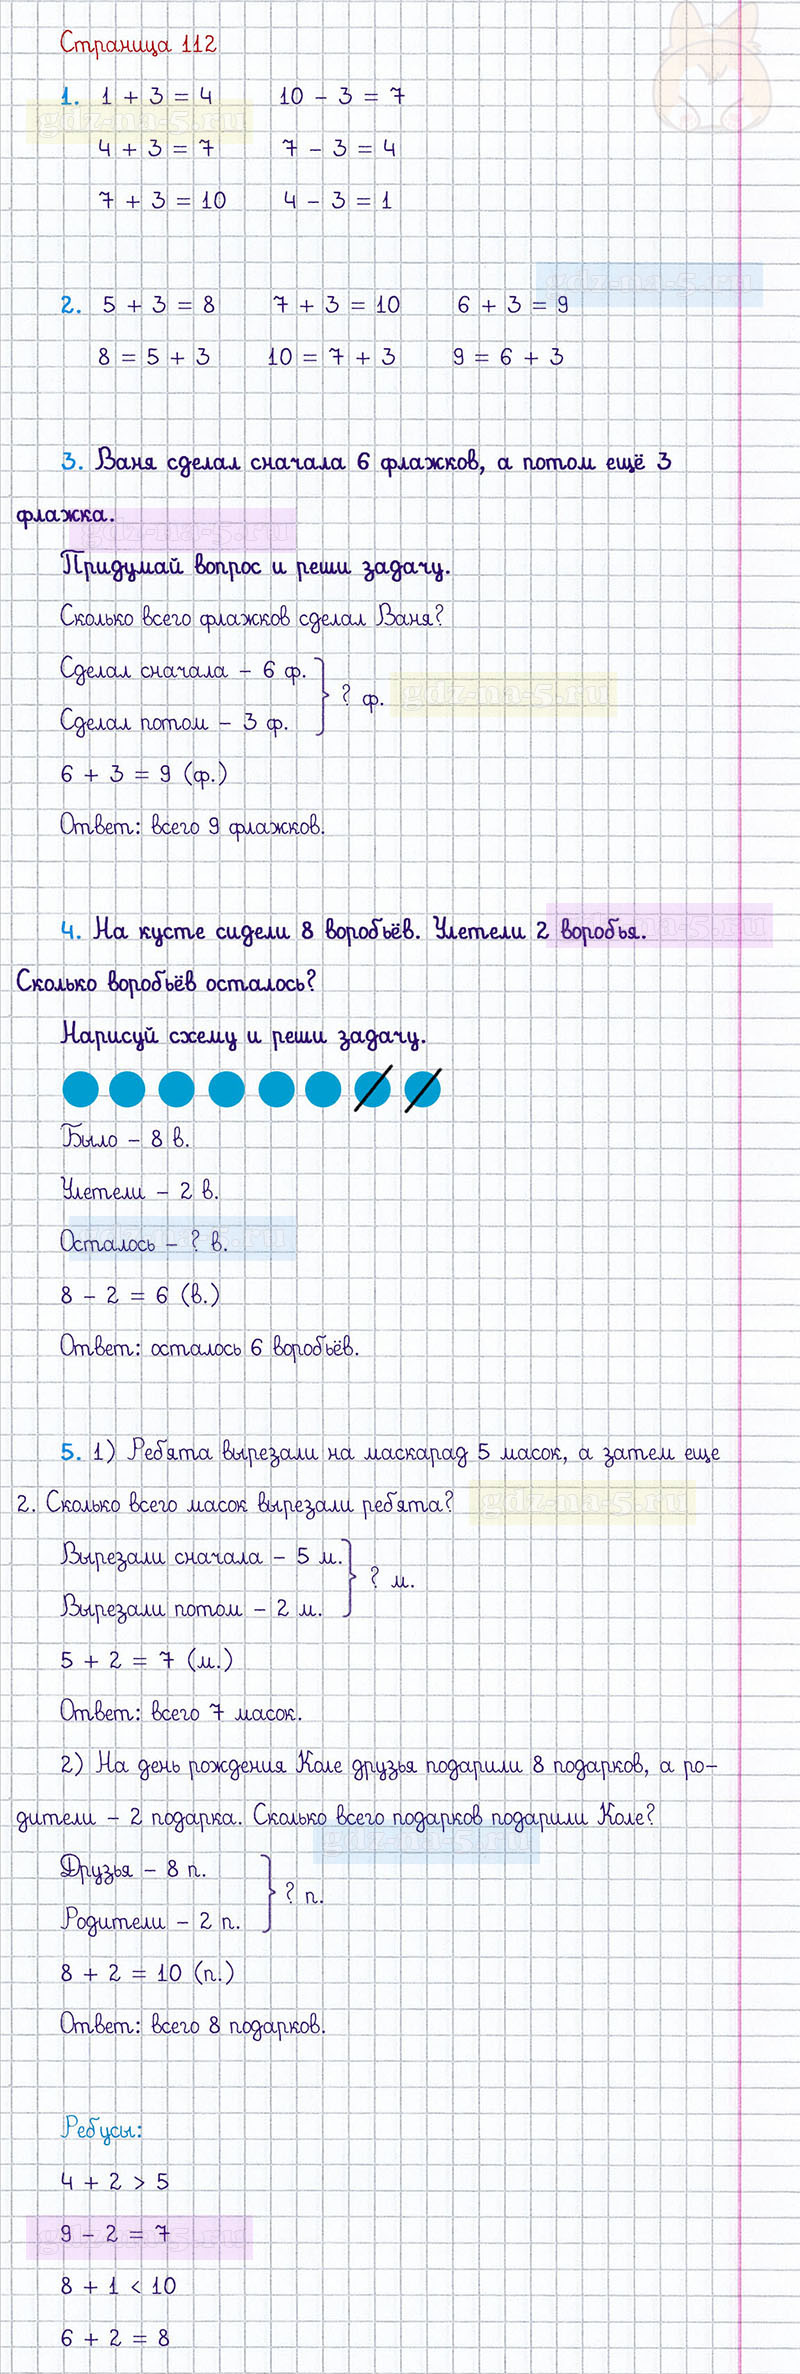 Страница 112
1. 1 + 3 = 4 10 - 3 = 7
gdz-na-5.ru
4 + 3 = 7 7 - 3 = 4
7 + 3 = 10 4 - 3 = 1
gdz-na-5.ru
2. 5 + 3 = 8 7 + 3 = 10 6 + 3 = 9
8 = 5 + 3 10 = 7 + 3 9 = 6 + 3
3. Ваня сделал сначала 6 флажков, а потом ещё 3
флажка.
gdz-na-5.ru
Придумай вопрос и реши задачу.
Сколько всего флажков сделал Ваня?
Сделал сначала - 6 ф.
? ф.
gdz-na-5.ru
Сделал потом - 3 ф.
6 + 3 = 9 (ф.)
Ответ: всего 9 флажков.
4. На кусте сидели 8 воробьёв. Улетели 2 воробья.
gdz-na-5.ru
Сколько воробьёв осталось?
Нарисуй схему и реши задачу.
Было - 8 в.
Улетели - 2 в.
Осталось - ? в.
gdz-na-5.ru
8 - 2 = 6 (в.)
Ответ: осталось 6 воробьёв.
5. 1) Ребята вырезали на маскарад 5 масок, а затем еще
2. Сколько всего масок вырезали ребята?
gdz-na-5.ru
Вырезали сначала - 5 м.
? м.
Вырезали потом - 2 м.
5 + 2 = 7 (м.)
Ответ: всего 7 масок.
2) На день рождения Коле друзья подарили 8 подарков, а ро-
дители - 2 подарка. Сколько всего подарков подарили Коле?
gdz-na-5.ru
Друзья - 8 п.
? п.
Родители - 2 п.
8 + 2 = 10 (п.)
Ответ: всего 8 подарков.
Ребусы:
4 + 2 > 5
9 - 2 = 7
gdz-na-5.ru
8 + 1 < 10
6 + 2 = 8